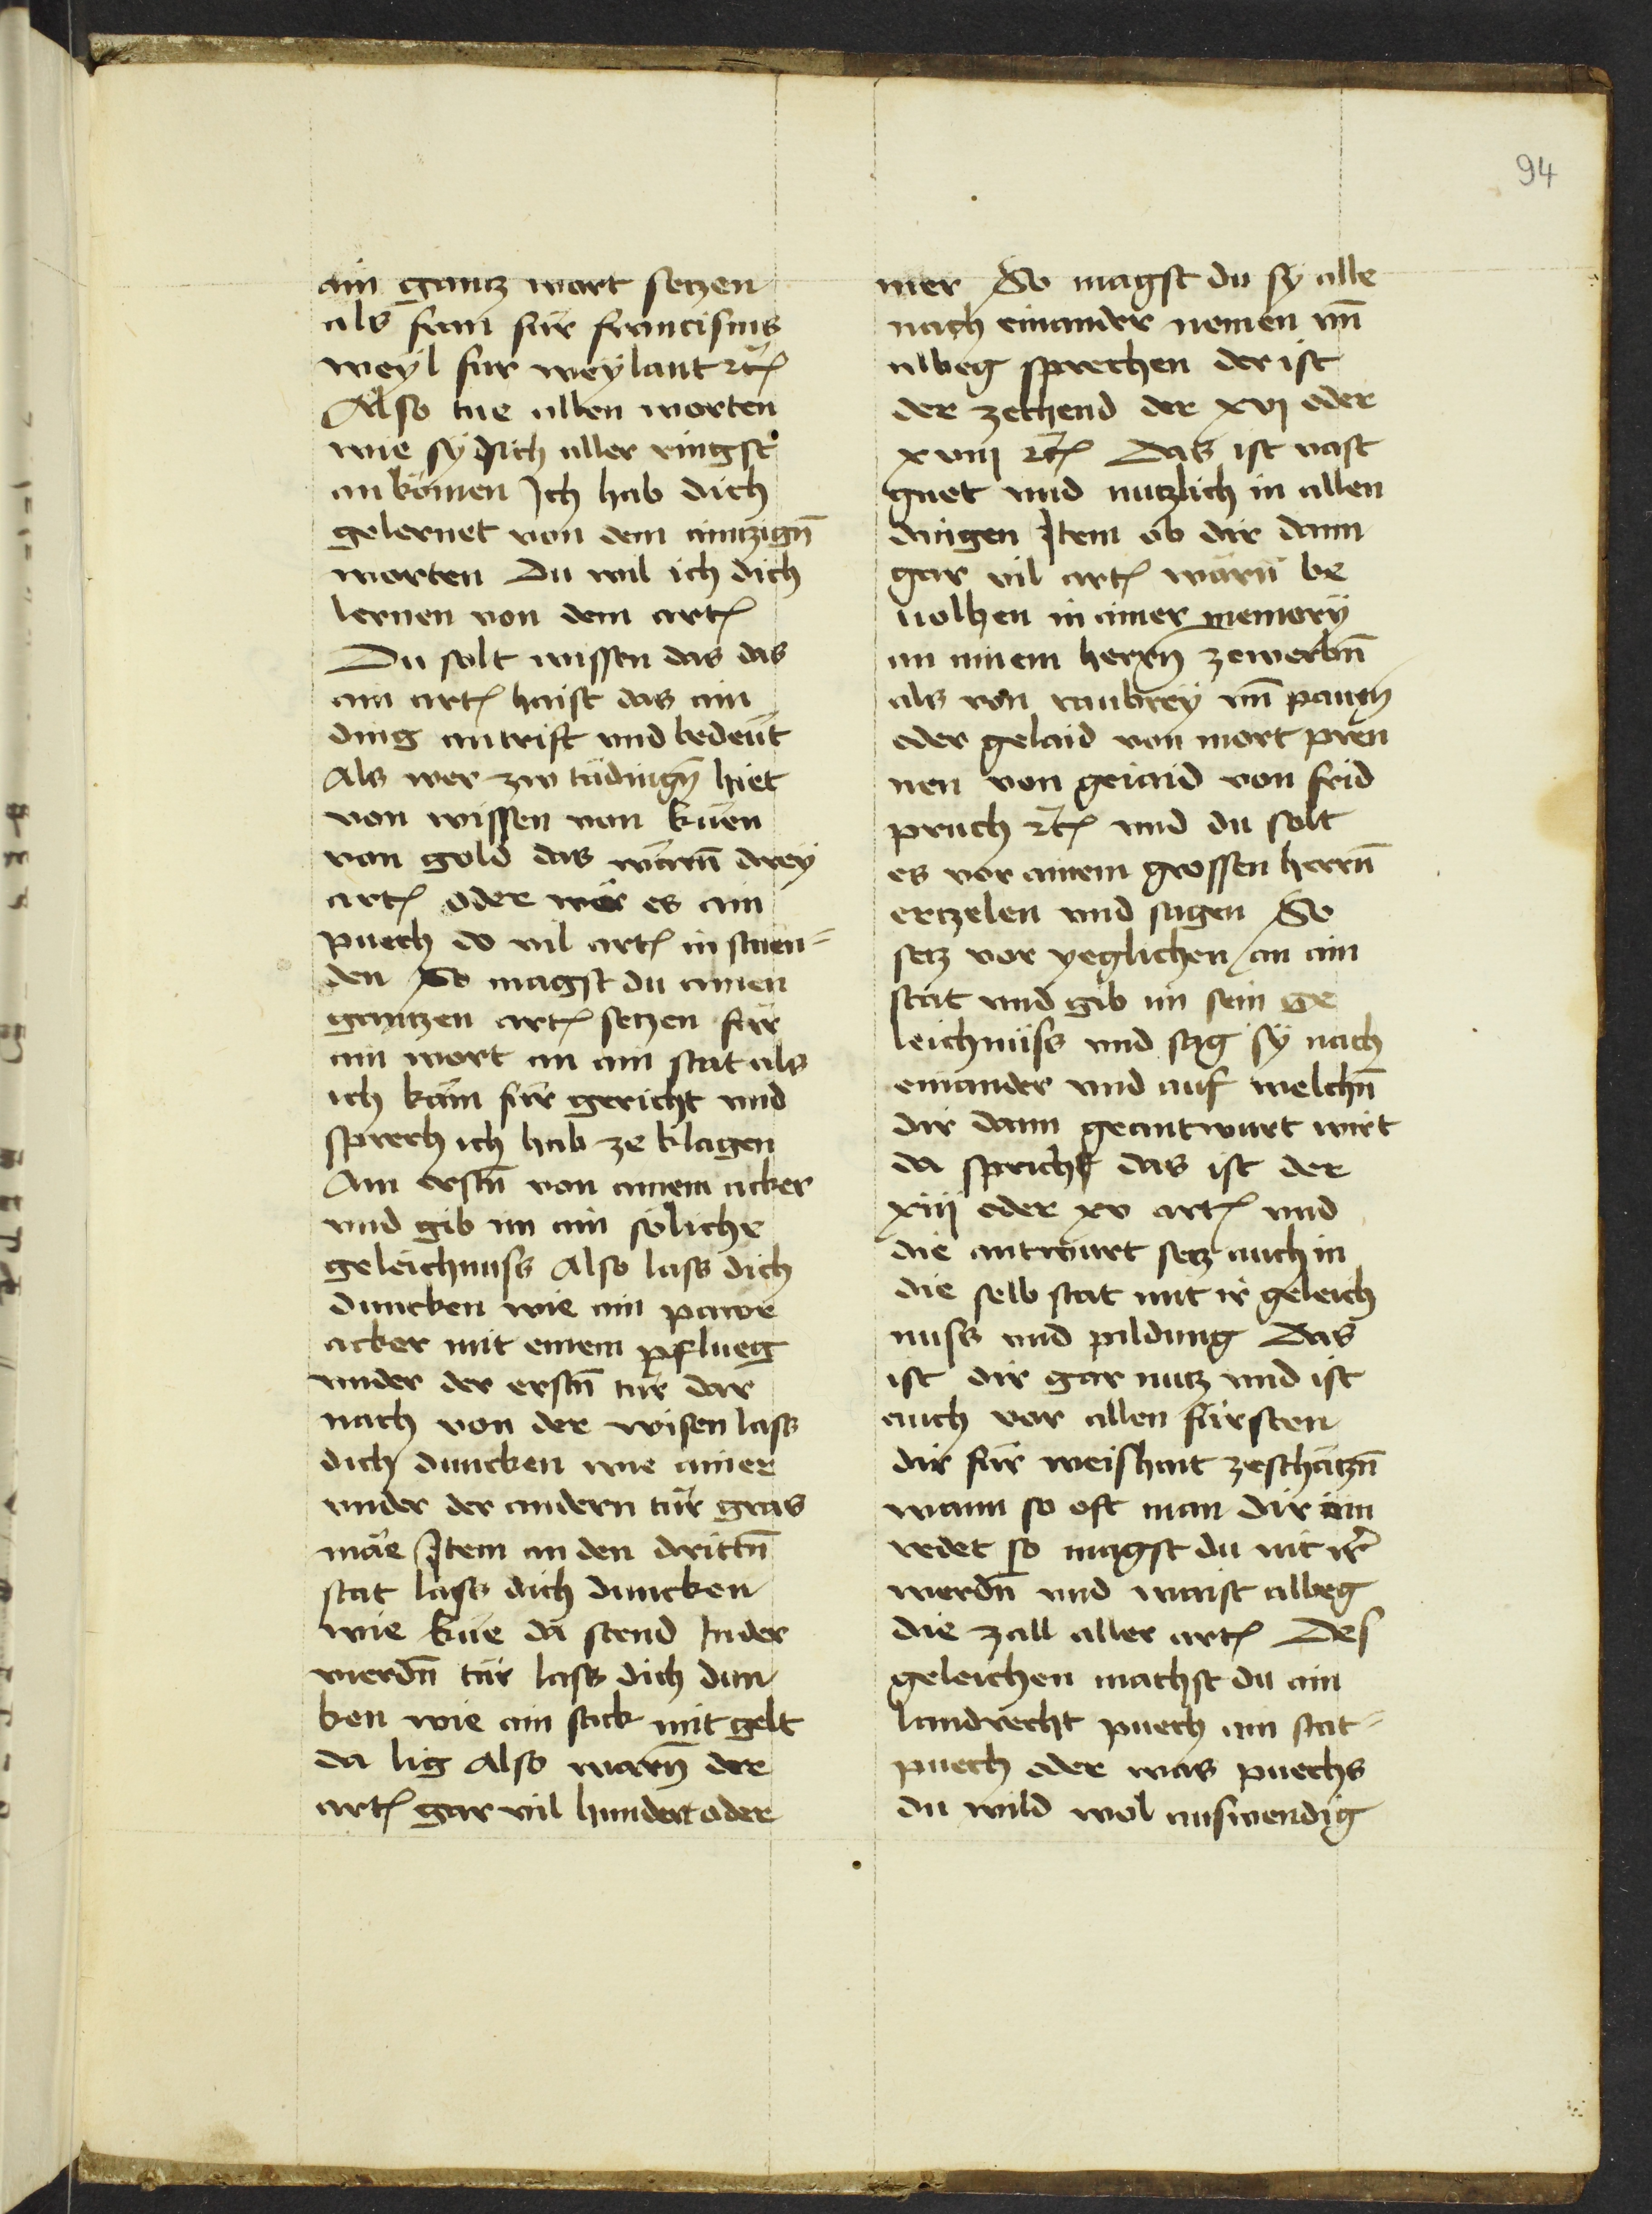 94
ain gantz wort setzen
als fran für francisus
weyl für weylant rc͛
Also tue allen worten
wie sy sich aller ringst
an kömen Ich hab dich
gelernet von dem aintzign̄
worten Du wil ich dich
lernen von dem art͛
Du solt wissen das das
ain art͛ haist das ain
ding antrift vnd bedeüt
Als wer zw tädingn̄ hiet
von wissen von küen
von gold das wärn̄ drey
art͛ oder wär es ain
puech do vil art͛ in stuen=
den So magst du ainen
gantzen art͛ setzen für
ain wort an ain stat als
ich käm für gericht vnd
sprech ich hab ze klagen
Am erstn̄ von ainem acker
vnd gib im ain söliche
geleichnuss Also lass dich
duncken wie ain pawr
acker mit einem pflueg
vnder der erstn̄ tür dar
nach von der wisen lass
dich duncken wie ainer
vnder der andern tür gras
mäe Item an den drittn̄
stat lass dich duncken
wie küe da stend In der
vierdn̄ tür lass dich dun
ken wie ain sack mit gelt
da lig Also warn̄ der
art͛ gar vil hundert oder
mer So magst du sy alle
nach einander nemen vn̄
albeg sprechen der ist
der zechend der xvj oder
xviij rc͛ Das ist vast
guet vnd nutzlich in allen
dingen Item ob dir dann
gar vil art͛ wärn̄ be
uolhen in ainer memory
an ainem herrn̄ zewerbn̄
als von raubrey vn̄ pawn̄
oder gelaid von mort pren
nen von geiaid von frid
pruch rc͛ vnd du solt
es vor ainem grossen herrn̄
ertzelen vnd sagen So
setz vor yeglichen an ain
stat vnd gib im sein ge
leichnüss vnd sag sy nach
einander vnd auf welchn̄
dir dann geantwurt wirt
da sprich das ist der
xiiij oder xv art͛ vnd
die antwurt setz auch in
die selb stat mit ir geleich
nuss vnd pildung Das
ist dir gar nutz vnd ist
auch vor allen fürsten
dir für weishait zeschätzn̄
wann so oft man dir ein
redet so magst du nit irr
werdn̄ vnd waist albeg
die zall aller art͛ Des
geleichen machst du ain
landrecht puech ain stat=
puech oder was puechs
du wild wol auswendig